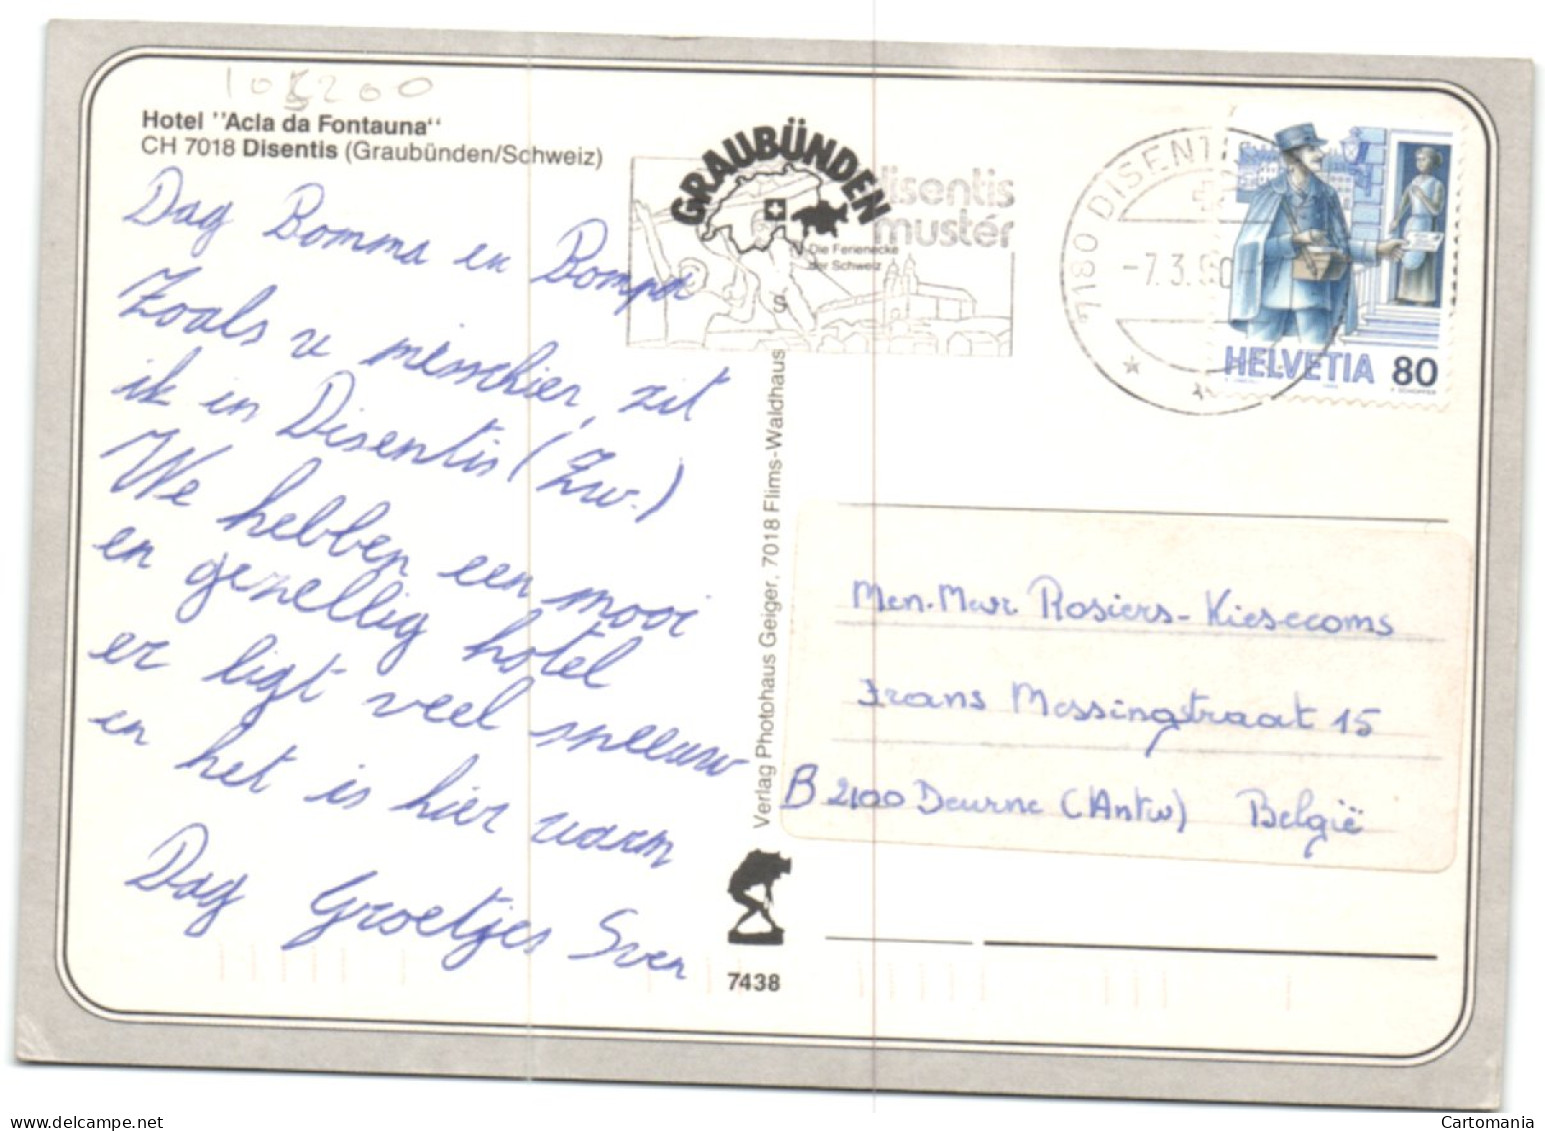 105200
Hotel "Acla da Fontauna"
CH 7018 Disentis (Graubünden/Schweiz)
Dag Bomma en Bompa
Zoals u misschien, zit
ik in Disentis (Zw.)
We hebben een mooi
en gezellig hotel
er ligt veel sneeuw
en het is hier warm
Dag Groetjes Sven
GRAUBÜNDEN
Die Ferienecke
der Schweiz
S
disentis
mustér
7180 DISENTI
-7.3.90-
HELVETIA 80
Verlag Photohaus Geiger, 7018 Flims-Waldhaus
7438
Men. Mevr. Rosiers-Kiesecoms
Frans Messingstraat 15
B 2100 Deurne (Antw) België
Cartomania